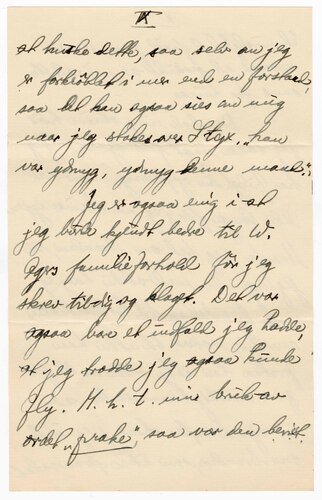 IX
at huske dette, saa selv om jeg
er forkrøblet i mer end en forstand,
saa det kan ogsaa sies om mig
naar jeg stakes over Styx, "han
var ydmyg, ydmyg denne mand".
Jeg er ogsaa enig i at
jeg burde kjendt bedre til W.
Egrs familieforhold før jeg
skrev til dig og klaget. Det var
ogsaa bare et indfald jeg hadde,
at jeg trodde jeg ogsaa kunde
fly. M. h. t. min bruk av
ordet "prake", saa var den bevist